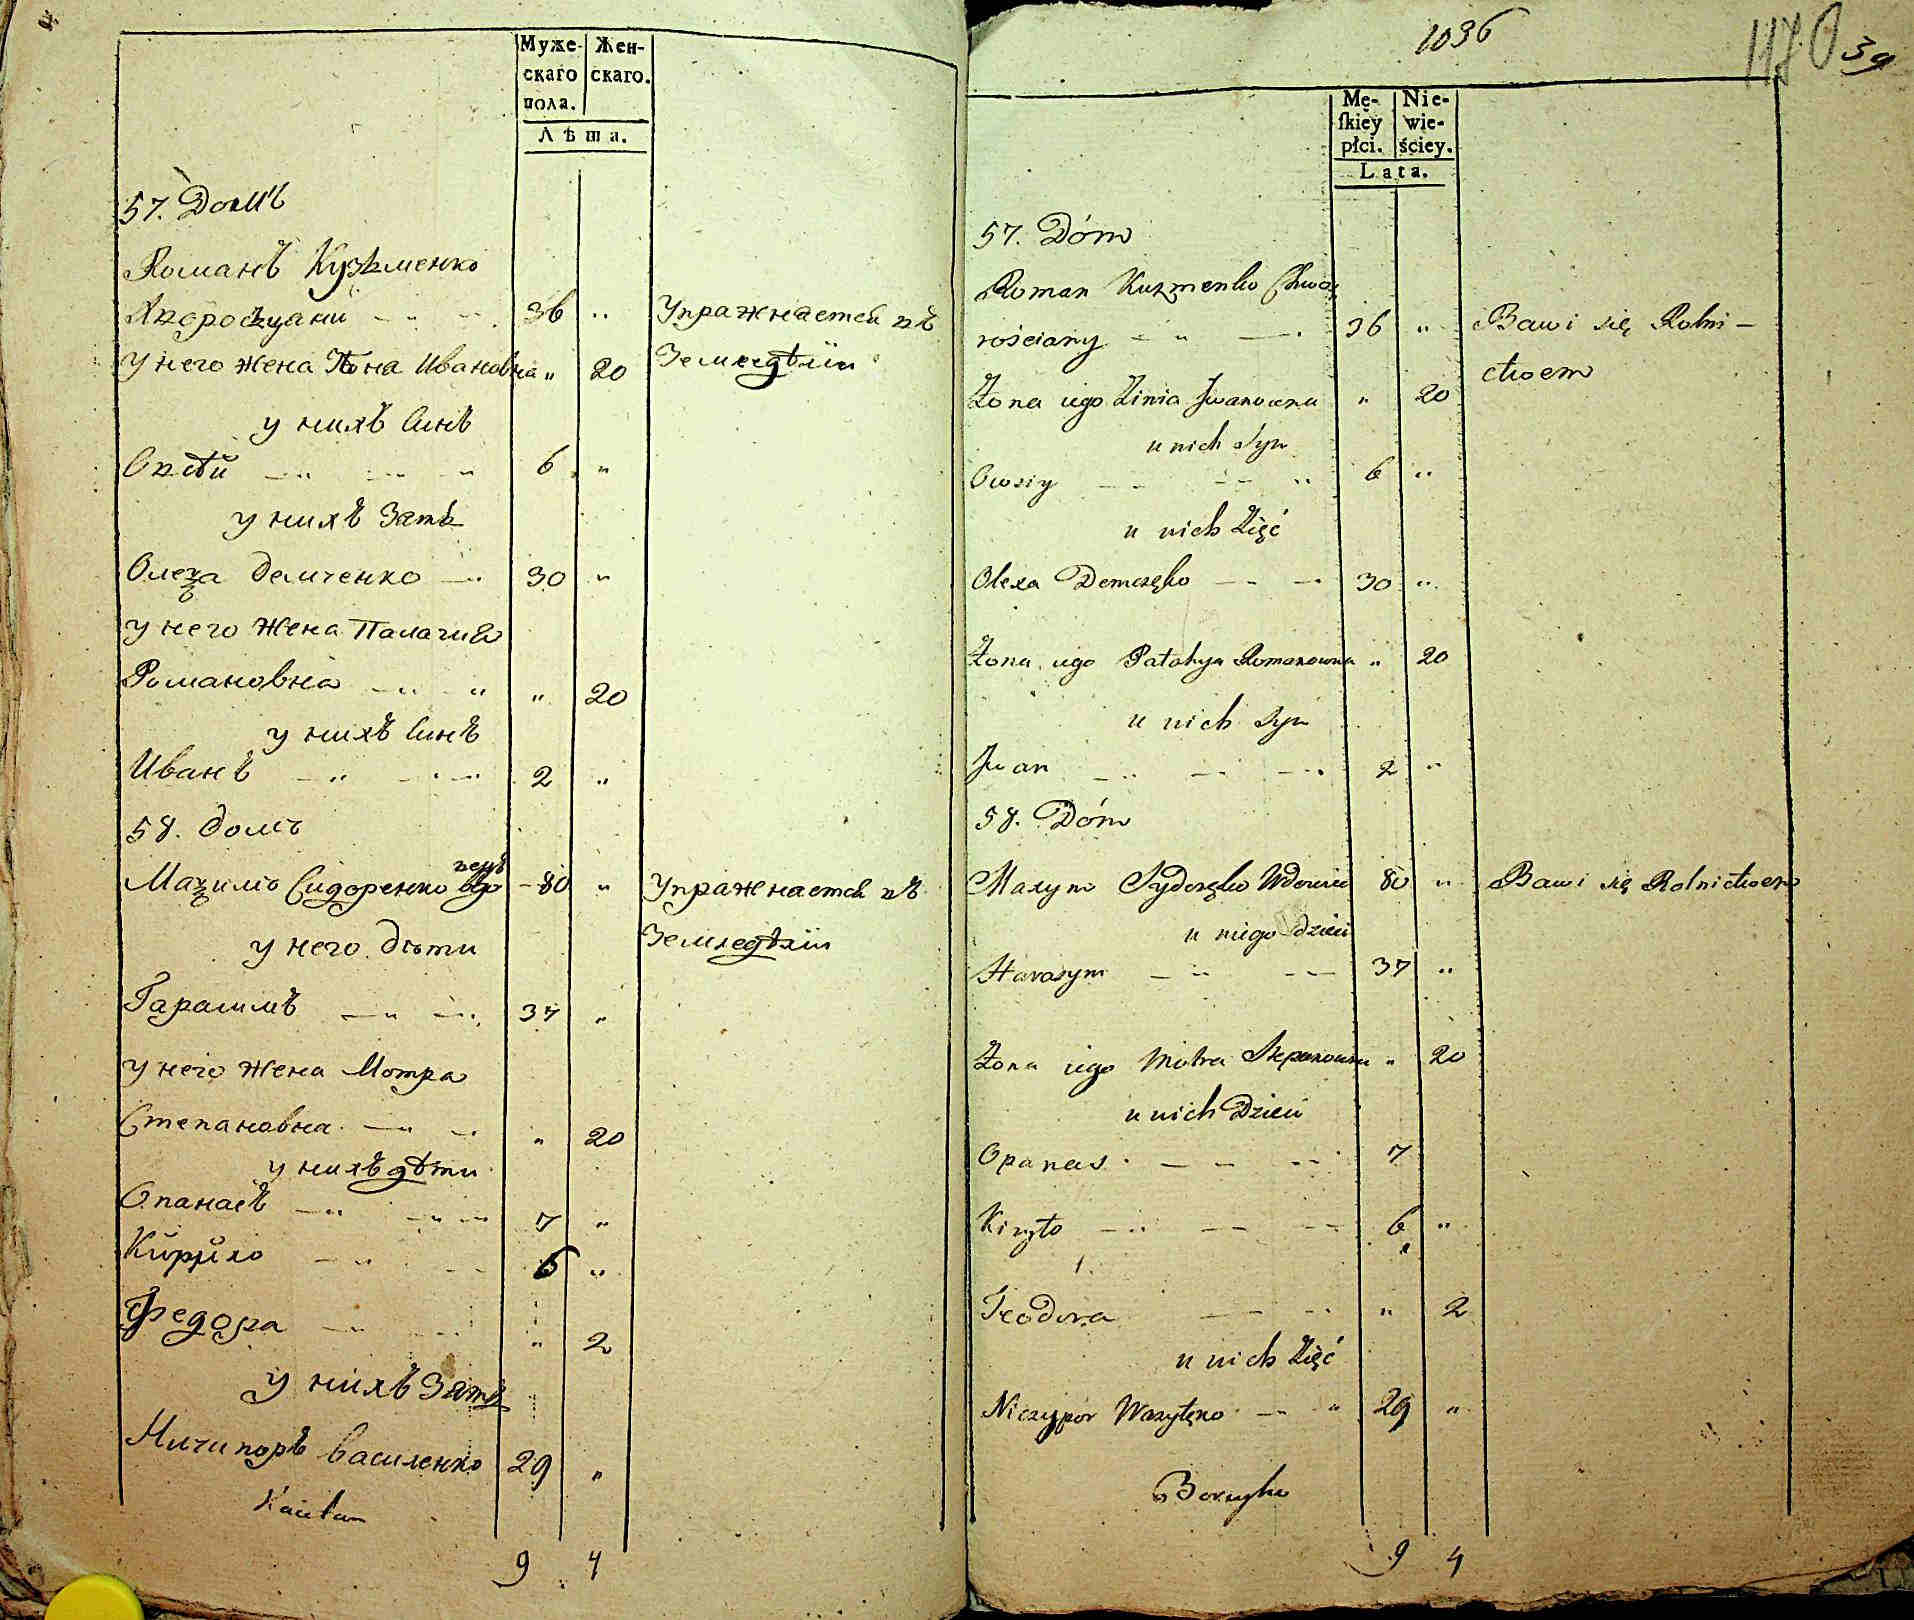 Муже-
скаго
пола.
Жен-
скаго.
Лѣта.
57. Домъ
Романъ Кузьменко
Хворощани 36 "
Упражнается въ
Земледѣліи
У него жена Ивановна " 20
у нихъ Синъ
Овсѣй 6 "
у нихъ Зять
Олеѯа Демченко 30 "
у него Жена Палагия
Романовна " 20
у нихъ Синъ
Иванъ 2 "
58. Домъ
Маѯимъ Сидоренко вдовецъ 80 "
Упражнается въ
Земледѣліи
у него дѣти
Гарасимъ 37 "
у него Жена Мотра
Степановна " 20
у нихъ дѣти
Опанасъ 7 "
Кирило 6 "
Федора " 2
у нихъ Зять
Ничипоръ Василенко 29 "
9 4
1036
1170
39
Mę-
skiey
płci.
Nie-
wie-
ściey.
Lata.
57. Dóm
Roman Kuzmenko Chwo-
rościany 36 "
Bawi się Rolni-
ctwem
Żona iego Zinia Iwanowna " 20
u nich Syn
Owsiy 6 "
u nich Zięć
Olexa Demczęko 30 "
Żona iego Pałahya Romanowna " 20
u nich Syn
Iwan 2 "
58. Dóm
Maxym Sydoręko Wdowiec 80 "
Bawi się Rolnictwem
u niego dzieci
Harasym 37 "
Żona iego Motra Stepanowna " 20
u nich Dzieci
Opanas 7
Kiryło 6 "
Teodora " 2
u nich Zięć
Niczypor Wasyłęko 29 "
9 4